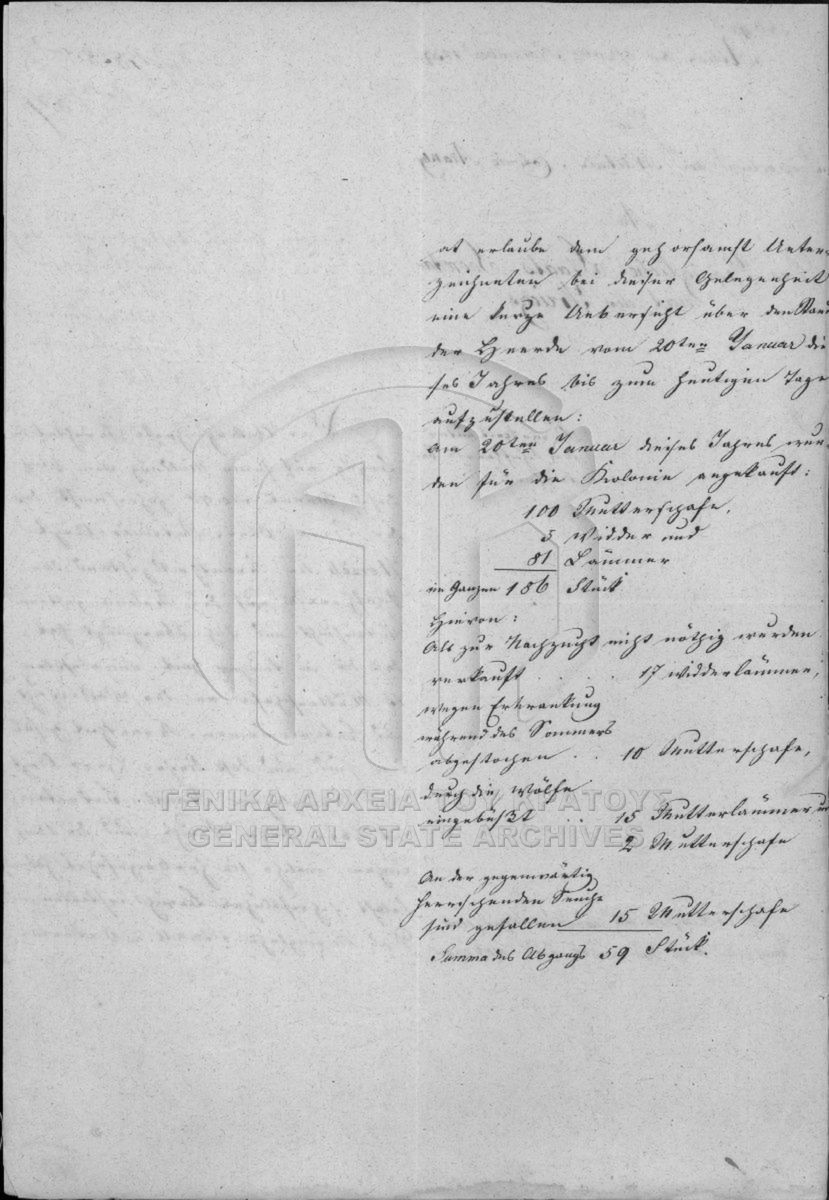 at erlaube dem gehorsamst Unter-
zeichneten bei dieser Gelegenheit
eine kurze Uebersicht über den Stand
der Heerde vom 20ten Januar die
ses Jahres bis zum heutigen Tage
aufzustellen:
Am 20ten Januar dieses Jahres wur-
den für die Kolonie angekauft:
100 Mutterschafe,
5 Widder und
81 Lämmer
im Ganzen 186 Stück
Hievon:
Als zur Nachzucht nicht nöthig wurden
verkauft . . . . 17 Widderlämmer,
wegen Erkrankung
während des Sommers
abgestochen . . 10 Mutterschafe,
durch die Wölfe
eingebüßt . . 15 Mutterlämmer u
2 Mutterschafe
An der gegenwärtig
herrschenden Seuche
sind gefallen 15 Mutterschafe
Summa des Abgangs 59 Stück.
ΓΕΝΙΚΑ ΑΡΧΕΙΑ ΤΟΥ ΚΡΑΤΟΥΣ
GENERAL STATE ARCHIVES